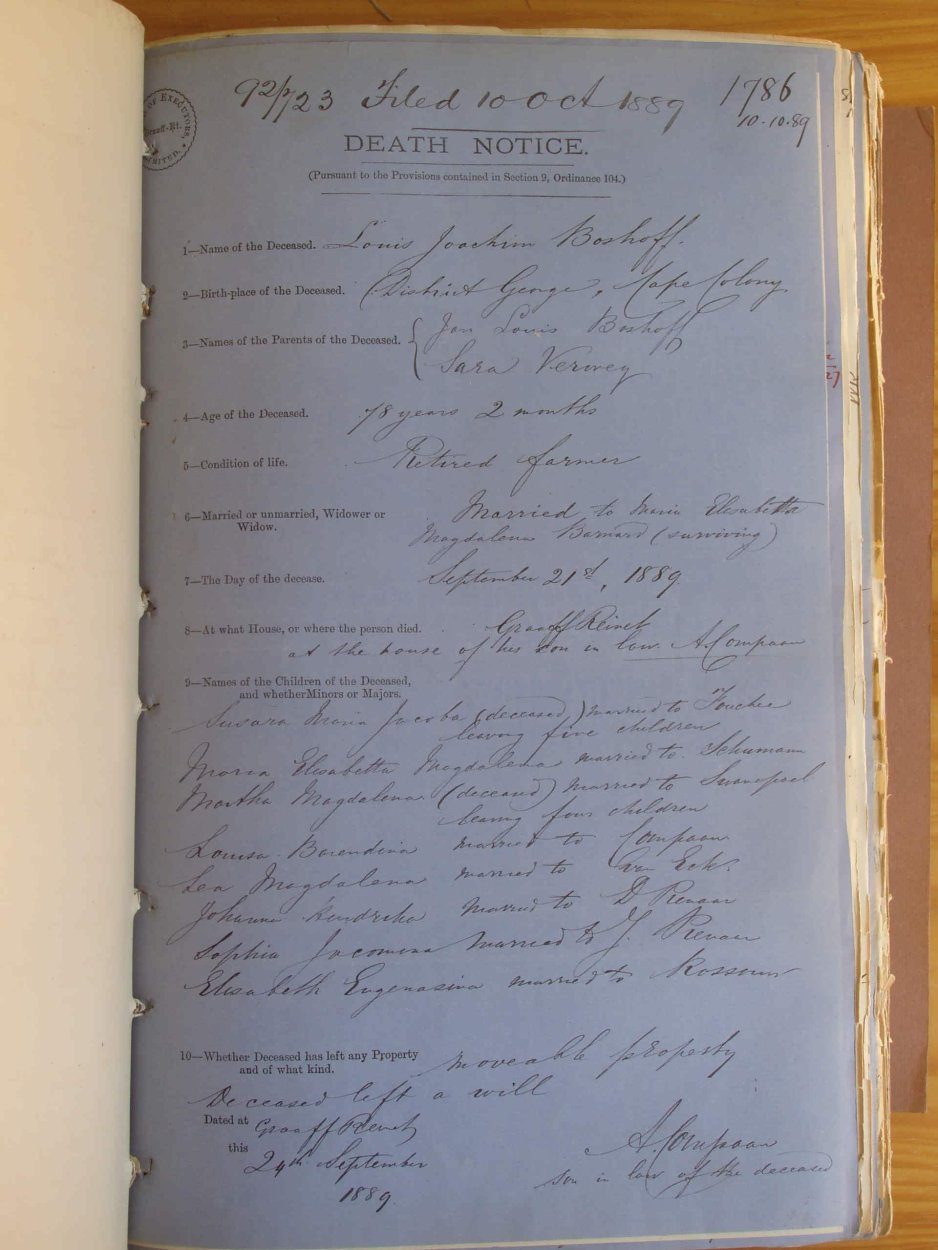 92/723 Filed 10 Oct 1889 1786
10.10.89
OF EXECUTORS,
Graaff-Rt.
LIMITED.
DEATH NOTICE.
(Pursuant to the Provisions contained in Section 9, Ordinance 104.)
1—Name of the Deceased. Louis Joachim Boshoff.
2—Birth-place of the Deceased. District George, Cape Colony
3—Names of the Parents of the Deceased. Jan Louis Boshoff
Sara Verwey
4—Age of the Deceased. 78 years 2 months
5—Condition of life. Retired farmer
6—Married or unmarried, Widower or Married to Maria Elisabetta
Widow. Magdalena Barnard (surviving)
7—The Day of the decease. September 21st, 1889.
8—At what House, or where the person died. Graaff Reinet
at the house of his son in law. A. Compaan
9—Names of the Children of the Deceased,
and whether Minors or Majors.
Susara Maria Jacoba (deceased) married to Fouchee
leaving five children
Maria Elisabetta Magdalena married to Schumann
Martha Magdalena (deceased) married to Swanepoel
leaving four children
Louisa Barendina married to Compaan
Lea Magdalena married to van Eck.
Johanna Hendrika married to D Renaar
Sophia Jacomina married to J. Renaar
Elisabeth Eugenasina married to Rossouw
10—Whether Deceased has left any Property moveable property
and of what kind.
Deceased left a will
Dated at Graaff Reinet
this 24th September A. Compaan
1889. son in law of the deceased